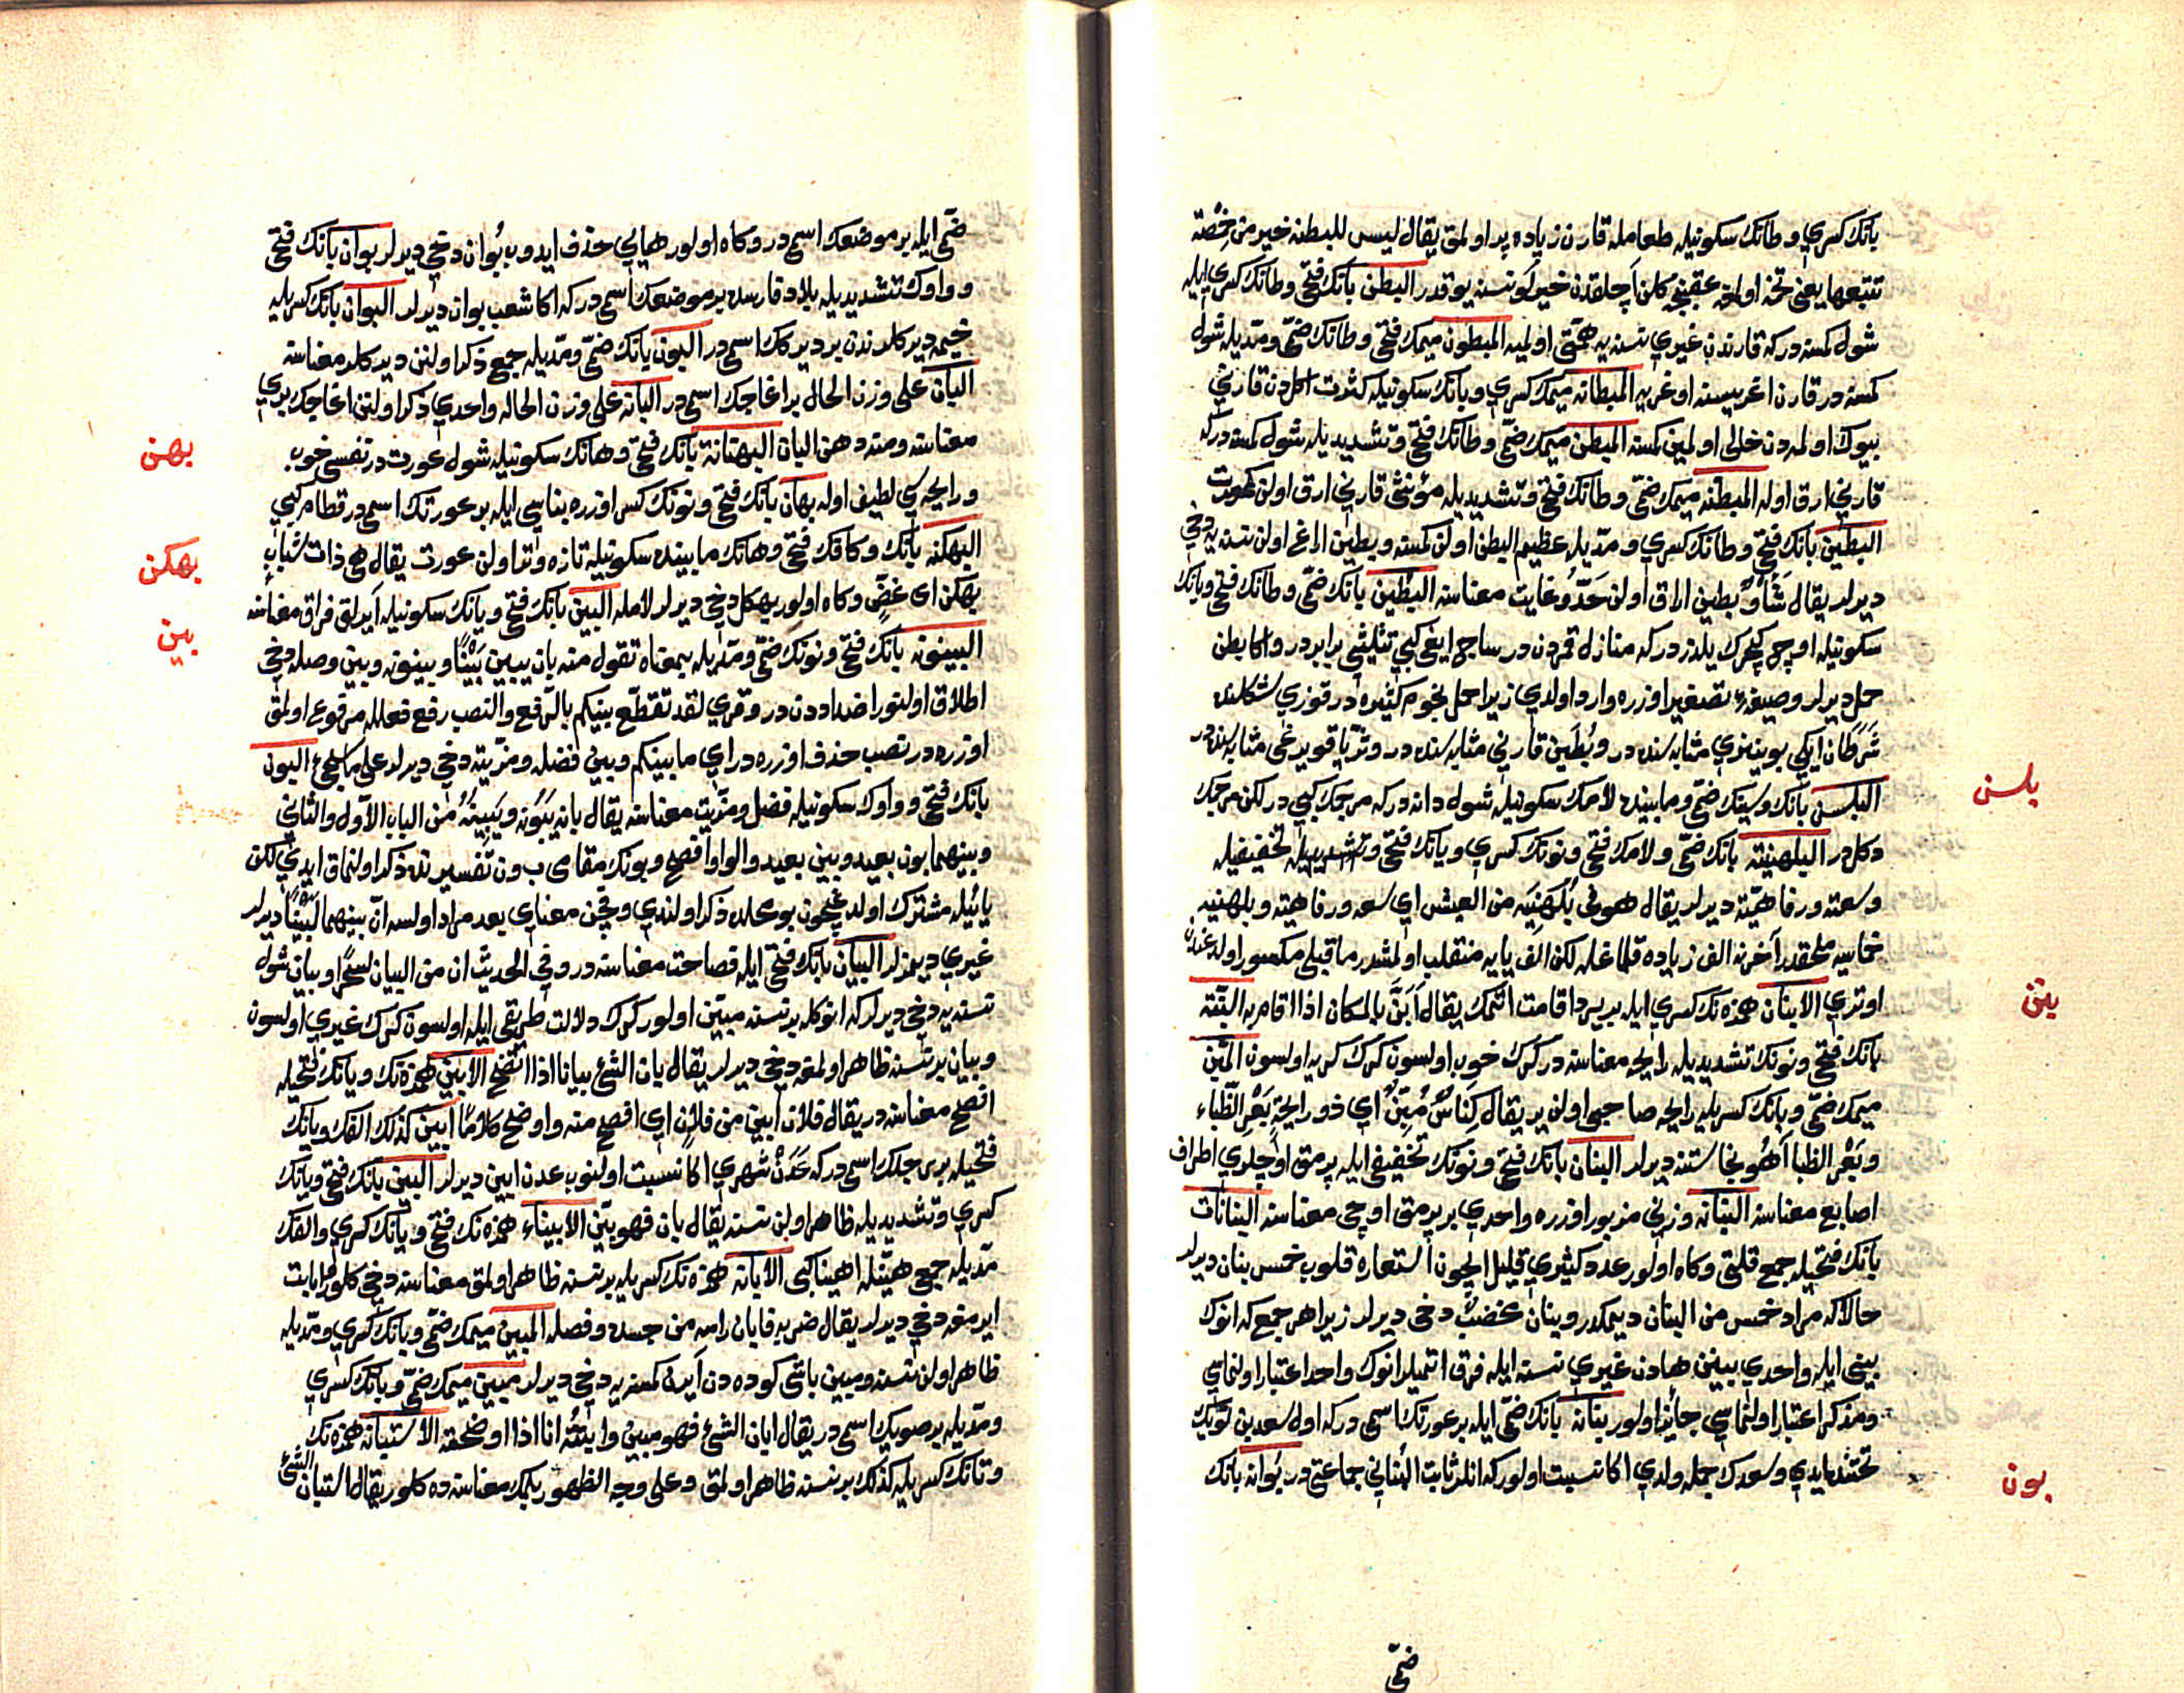 بانك كسري وطانك سكونيله طعامله قارن زياده پر اولمق يقال ليس للبطنه خير من خمصة
تتبعها يعني تخمه اولوب عقبنجه كلن آچلقدن خيرلو نسنه يوقدر البطن بانك فتحي وطانك كسري ايله
شول كمسنه دركه قارندن غيري نسنه يه همتي اولميه المبطون ميمك فتحي وطانك ضمي ومديله شول
كمسنه در قارن اغريسنه اوغريه المبطانه ميمك كسري وبانك سكونيله كثرت اكلدن قارني
بيوك اولمه دن خالى اولمين كمسنه المبطن ميمك ضمي وطانك فتحي وتشديديله شول كمسنه دركه
قارني ارق اوله المبطنه ميمك ضمي وطانك فتحي وتشديديله مؤنثى قارني ارق اولن عورت
البطين بانك فتحي وطانك كسري ومديله عظيم البطن اولن كمسنه وبطين اراغ اولن نسنه يه دخي
ديرلر يقال شَأْوٌ بطين اراق اولن حدّ وغايت معناسنه البطين بانك ضمي وطانك فتحي ويانك
سكونيله اوچ كچرك يلدزدركه منازل قمردن در ساج اياغى كبي تثليثى برابردر واكا بطن
حمل ديرلر وصيغهء تصغير اوزره وارد اولدي زيرا حمل نجوم كثيره در قوزي شكلنده
شَرَطان ايكي بوينوزي مثابه سنده در وبُطَين قارني مثابه سنده در وثريا قويرغى مثابه سنده در
البلسن بانك وسينك ضمي ومابينده لامك سكونيله شول دانه دركه مرجمك كبي در لكن مرجمك
دكلدر البلهنيه بانك ضمي ولامك فتحي ونونك كسري ويانك فتحي وتشديديله تخفيفيله
وسعته ورفاهيته ديرلر يقال هو فى بُلَهْنِيَه من العيش اي سعه ورفاهيته وبلهنيه
خماسيه ملحقدر آخرنه الف زياده قلمغله لكن الف يايه منقلب اولمشدر ماقبلى مكسور اولدغندن
اوتري الابنان همزه نك كسري ايله بر يرده اقامت اتمك يقال اَبَنَّ بالمكان اذا اقام به البنّه
بانك فتحي ونونك تشديديله رايحه معناسنه در كرك خوب اولسون كرك كريه اولسون المبنّ
ميمك ضمي وبانك كسريله رايحه صاحبى اولن ير يقال كِناسٌ مُبِنٌّ اي ذو رايحة بَعْر الظباء
وبَعْر الظبا آهُو نجاستنه ديرلر البنان بانك فتحي ونونك تخفيفى ايله پرمق اوجلري اطراف
اصابع معناسنه البنانه وزني مزبور اوزره واحدي بر پرمق اوجى معناسنه البنانات
بانك فتحيله جمع قلتى وكاه اولور عدد كثيري قليل ايچون استعاره قلوب خمس بنان ديرلر
حالاكه مراد خمس من البنان ديمكدر وبنان مخضب دخي ديرلر زيرا هر جمع كه انوك
بيني ايله واحدي بيننده هادن غيري نسنه ايله فرق اتميلر انوك واحد اعتبار اولنماسي
ومذكر اعتبار اولنماسي جائز اولور بنانه بانك ضمي ايله بر عورتك اسمى دركه اول سعد بن لؤيك
تحتنده ايدي وسعدك جمله ولدي اكا نسبت اولور كه انلر ثابت البُناني جماعتى در بُوانه بانك
ضمى
بلسن
بنن
بون
ضمي ايله بر موضعك اسمى در وكاه اولور هايي حذف ايدوب بُوان دخي ديرلر بوان بانك فتحي
وواوك تشديديله بلاد فارسده بر موضعك اسمى دركه اكا شعب بوان ديرلر البوان بانك كسريله
خيمه ديركلرندن بر ديركك اسمى در البون بانك ضمي ومديله جمع ذكر اولنن ديركلر معناسنه
البان على وزن الحال بر اغاجك اسمى در البانه على وزن الحاله واحدي ذكر اولنن اغاجك بري
معناسنه ومنه دهن البان البهنانة بانك فتحي وهانك سكونيله شول عورت در نفسى خوب
ورايحه سي لطيف اوله بهان بانك فتحي ونونك كسر اوزره بناسي ايله بر عورتك اسمى در قطام كبي
البهكنه بانك وكافك فتحي وهانك مابينده سكونيله تازه وتنا ولن عورت يقال هى ذات شباب
بهكن اى غضّ وكاه اولور بهكل دخي ديرلر لامله البين بانك فتحي ويانك سكونيله آيرلق فراق معناسنه
البينونه بانك فتحي ونونك ضمي ومديله بمعناه تقول منه بان يبين بَيْنًا وبينونه وبين وصله دخي
اطلاق اولنور اضداددن در وقري لقد تقطع بينكم بالرفع والنصب رفع فعلله مرفوع اولمق
اوزره در نصب حذف اوزره در اي مابينكم وبين فضله ومزيته دخي ديرلر على ما سيجئ البون
بانك فتحي وواوك سكونيله فضل ومزيت معناسنه يقال بانه يبونه ويبينه من الباب الاول والثاني
وبينهما بون بعيد وبين بعيد والواو افصح وبونك مقامى ب ون تفسيرنده ذكر اولنماق ايدي لكن
يائيله مشترك اولدغيچون بو محلده ذكر اولندي وقچن معناي بعد مراد اولسه ان بينهما لَبَيْنًا ديرلر
غيري ديمزلر البيان بانك فتحي ايله فصاحت معناسنه در وفي الحديث ان من البيان لسحرا وبيان شول
نسنه يه دخي ديرلركه انوكله بر نسنه مبين اولور كرك دلالت طريقى ايله اولسون كرك غيري اولسون
وبيان بر نسنه ظاهر اولمغه دخي ديرلر يقال بان الشئ بيانا اذا اتضح الابين همزه نك ويانك فتحيله
افصح معناسنه در يقال فلان ابين من فلان اي افصح منه واوضح كلامًا ابين كذلك الفك ويانك
فتحيله بر رجلك اسمى دركه عَدَنْ شهري اكا نسبت اولنوب عدن ابين ديرلر البين بانك فتحي ويانك
كسري وتشديديله ظاهر اولن نسنه يقال بان فهو بيّن الابيناء همزه نك فتحي ويانك كسري والفك
مديله جمع هيّنله اهينا كبى الابانه همزه نك كسريله بر نسنه ظاهر اولمق معناسنه دخي كلور ابانت
ايرمغه دخي ديرلر يقال ضربه فابان راسه من جسده وفصله المبين ميمك ضمي وبانك كسري ومديله
ظاهر اولن نسنه ومبين باشى كوده دن آيرن كمسنه يه دخي ديرلر مبين ميمك ضمي وبانك كسري
ومديله بر صويك اسمى در يقال ابان الشئ فهو مبين وابنته انا اذا اوضحته الاستبانه همزه نك
وتانك كسريله كذلك بر نسنه ظاهر اولمق وعلى وجه الظهور بلمك معناسنه ده كلور يقال استبان الشئ
بهن
بهكن
بين